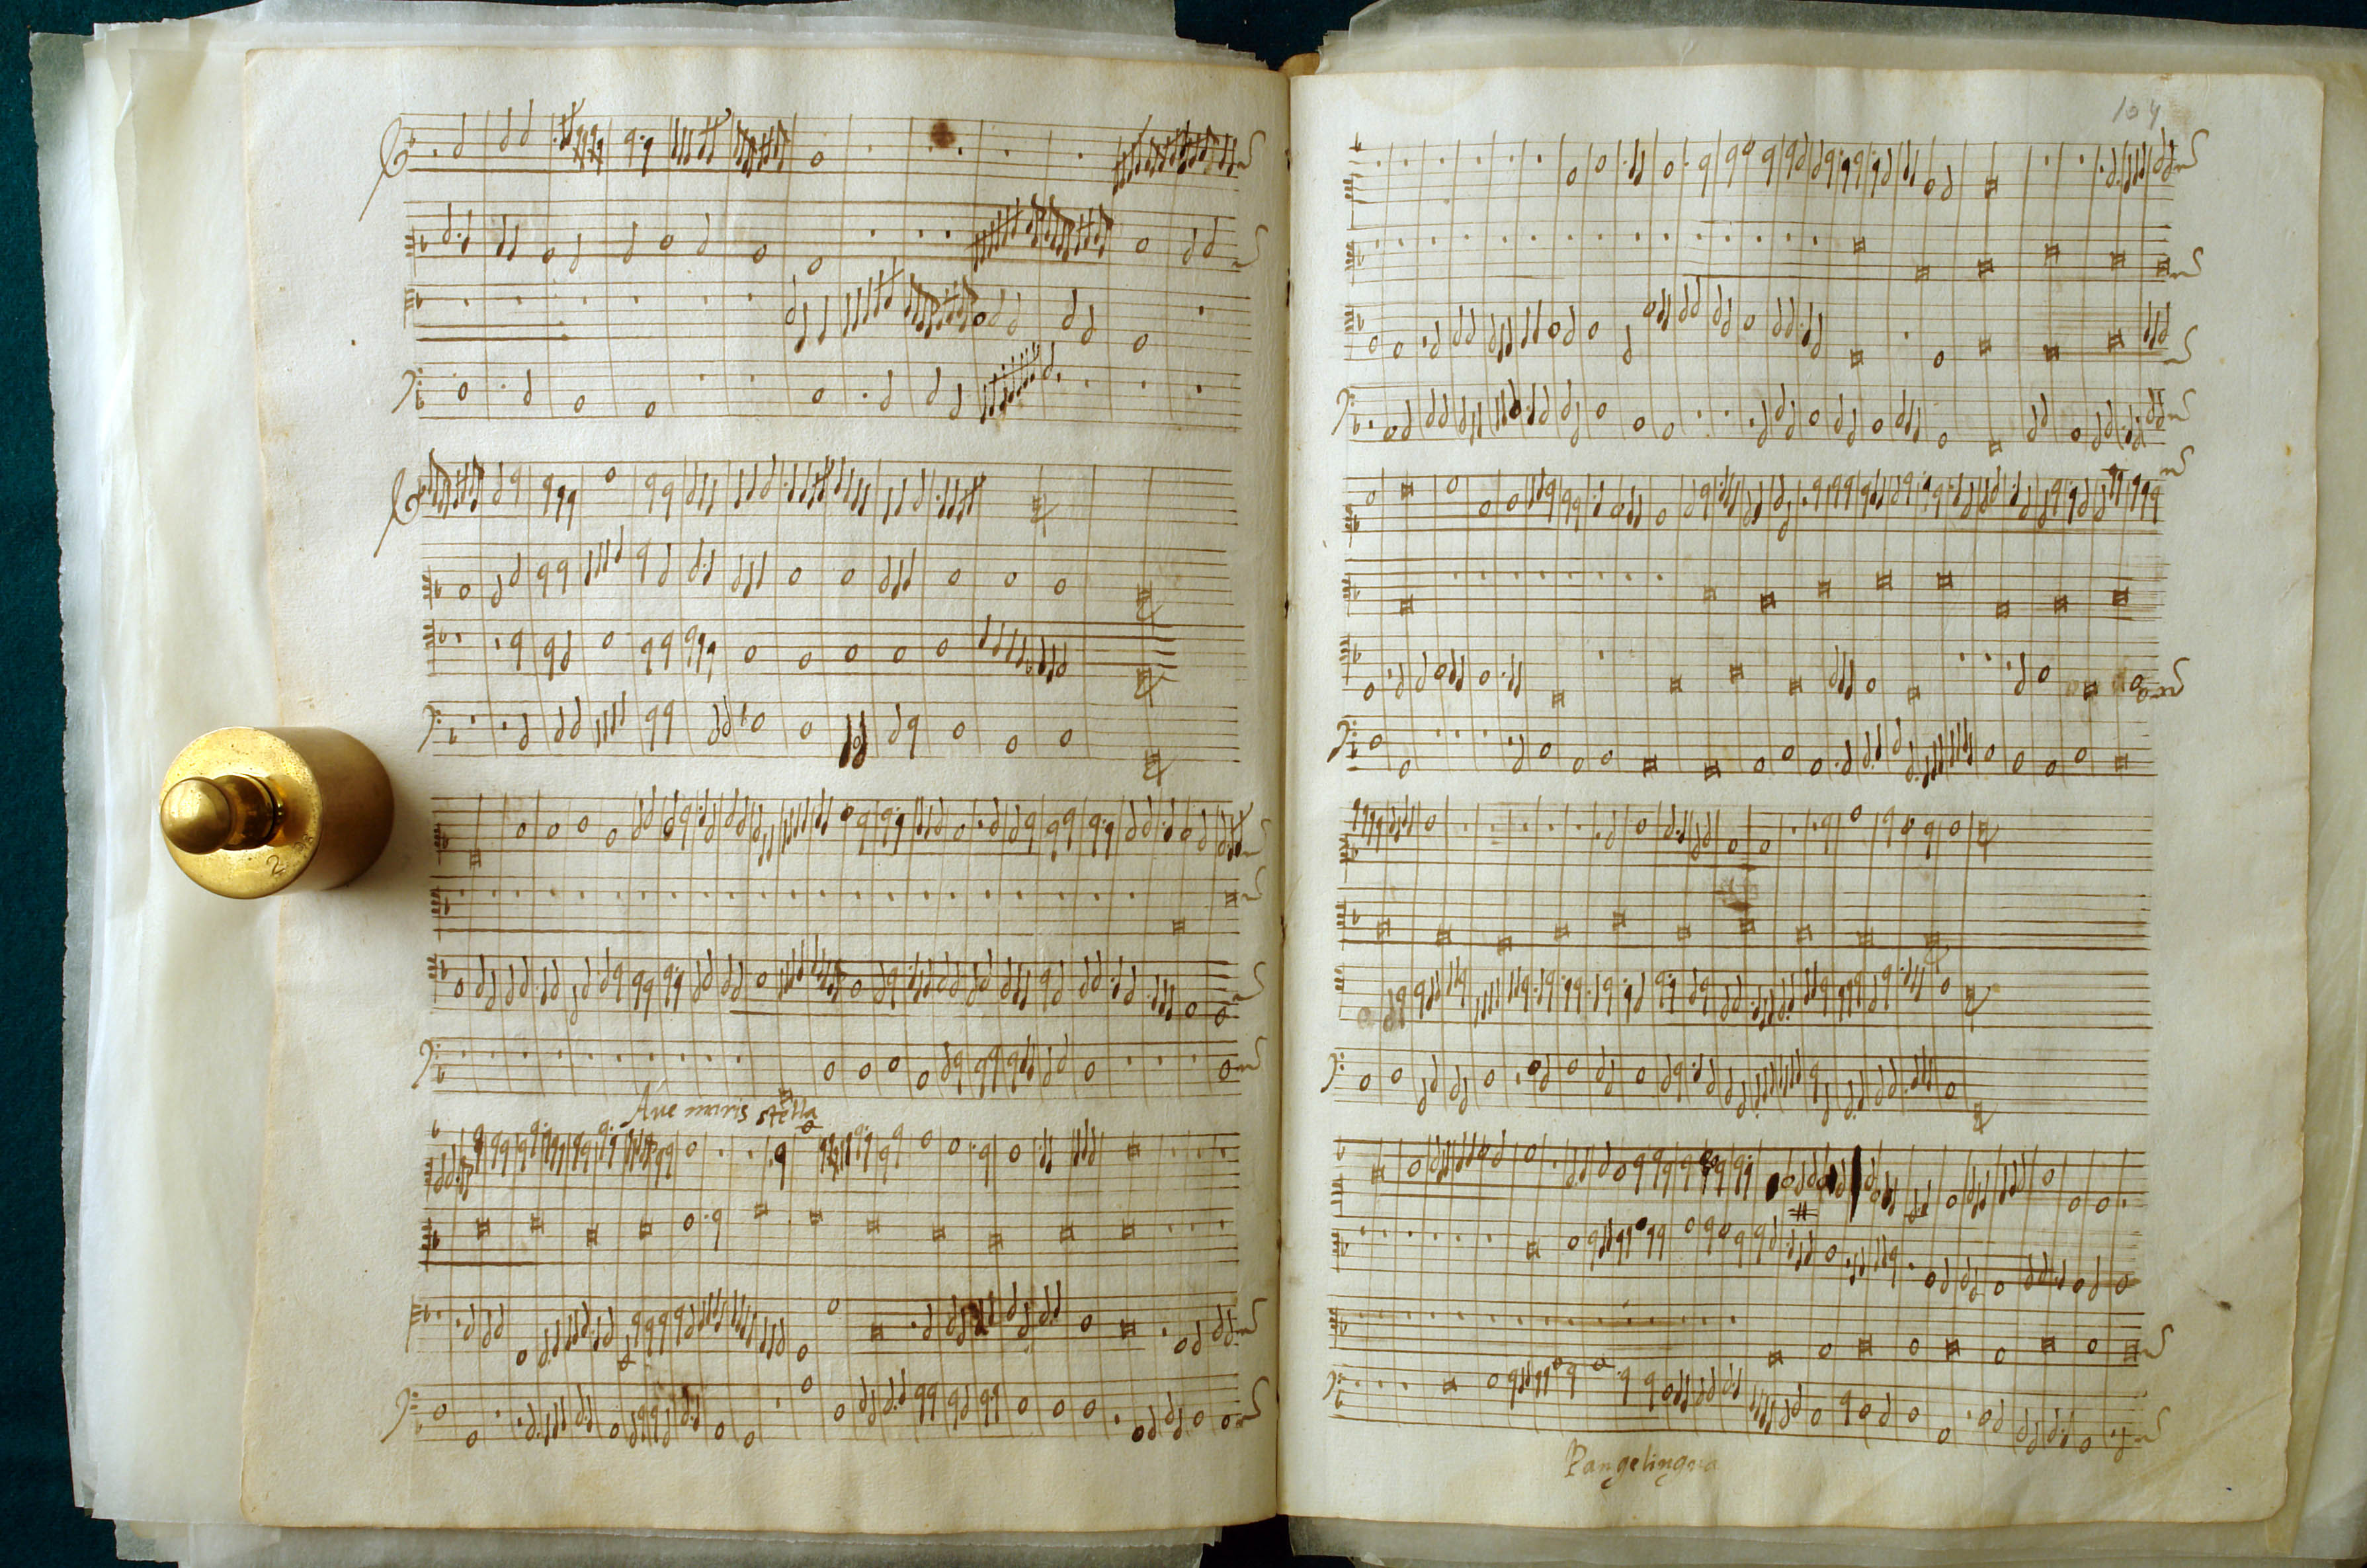 104
Aue maris stella
Pangelingua